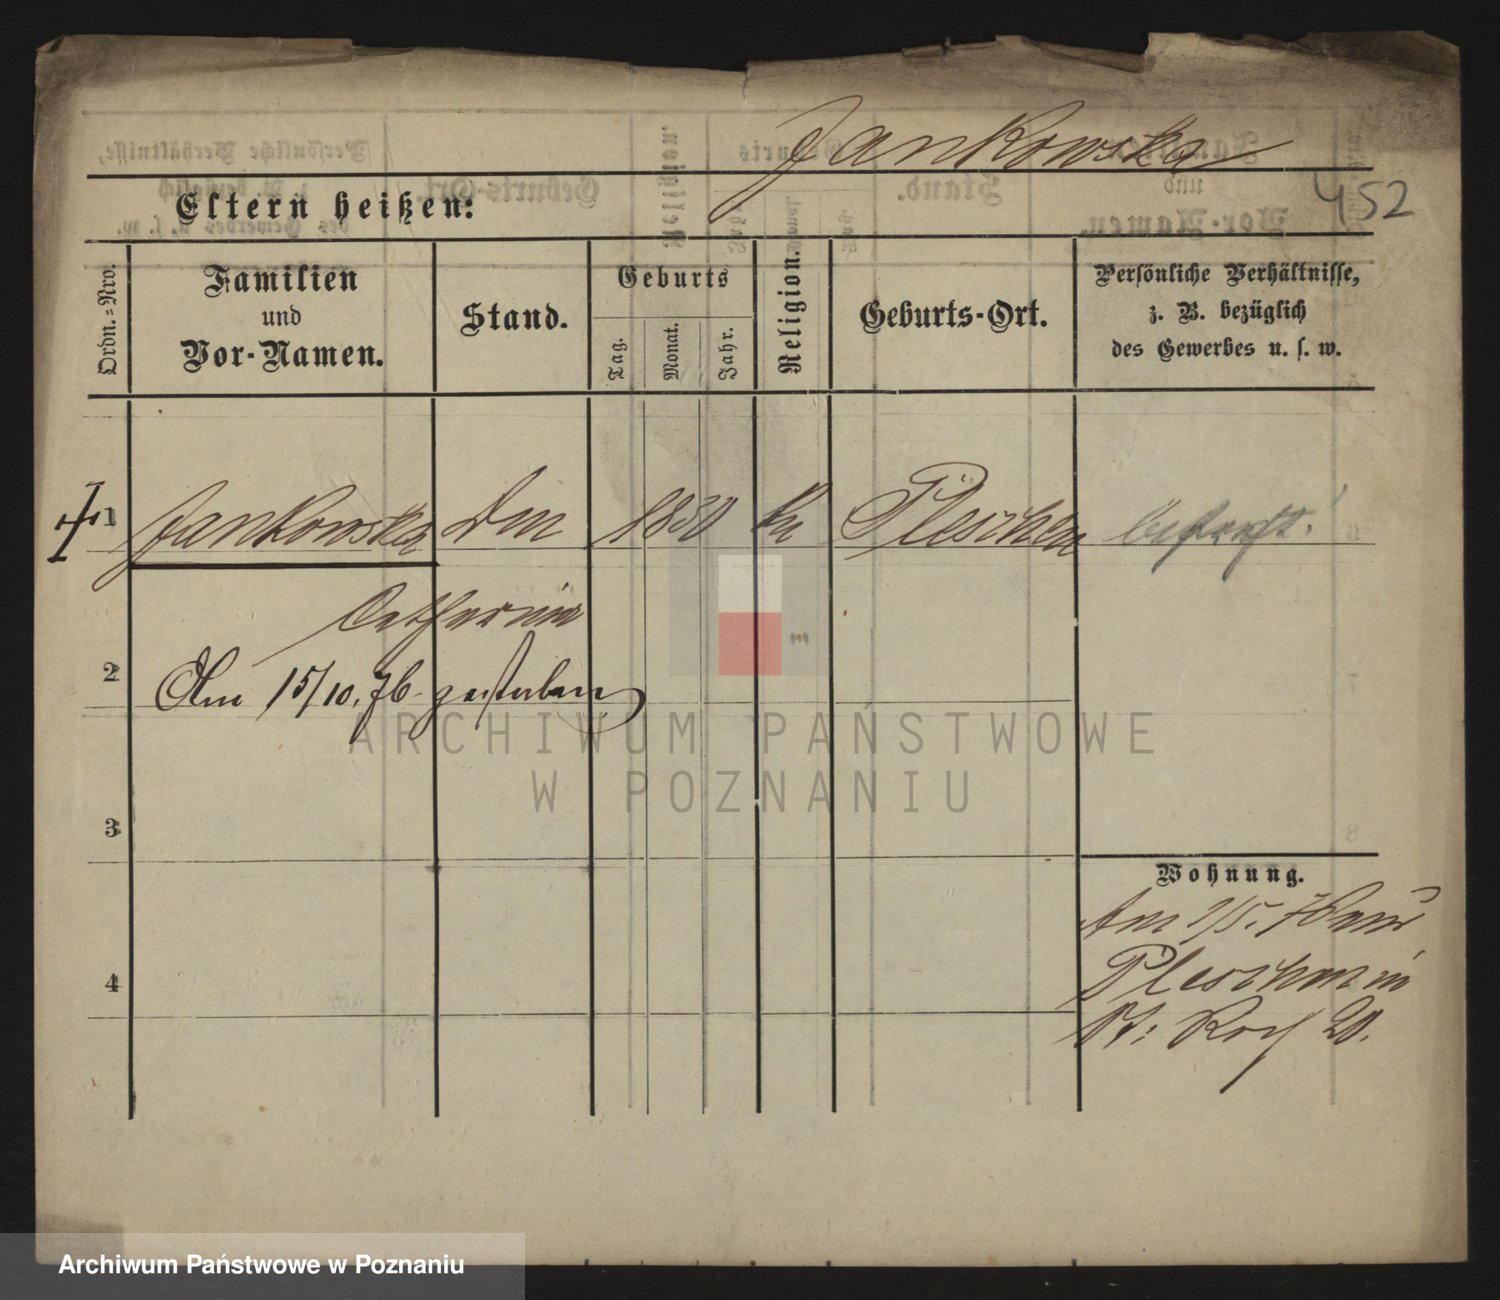 Jankowska
452
Eltern heißen:
Ordn.=Nro.
Familien
und
Vor-Namen.
Stand.
Geburts
Tag.
Monat.
Jahr.
Religion.
Geburts-Ort.
Persönliche Verhältnisse,
z. B. bezüglich
des Gewerbes u. s. w.
1 Jankowska 1830 Pleschen bestraft!
Catharina
2 Am 15/10. 76 gestorben
3
4
Wohnung.
Am 1/5. 76
Pleschen in
St: Roch 20.
ARCHIWUM PAŃSTWOWE
W POZNANIU
Archiwum Państwowe w Poznaniu